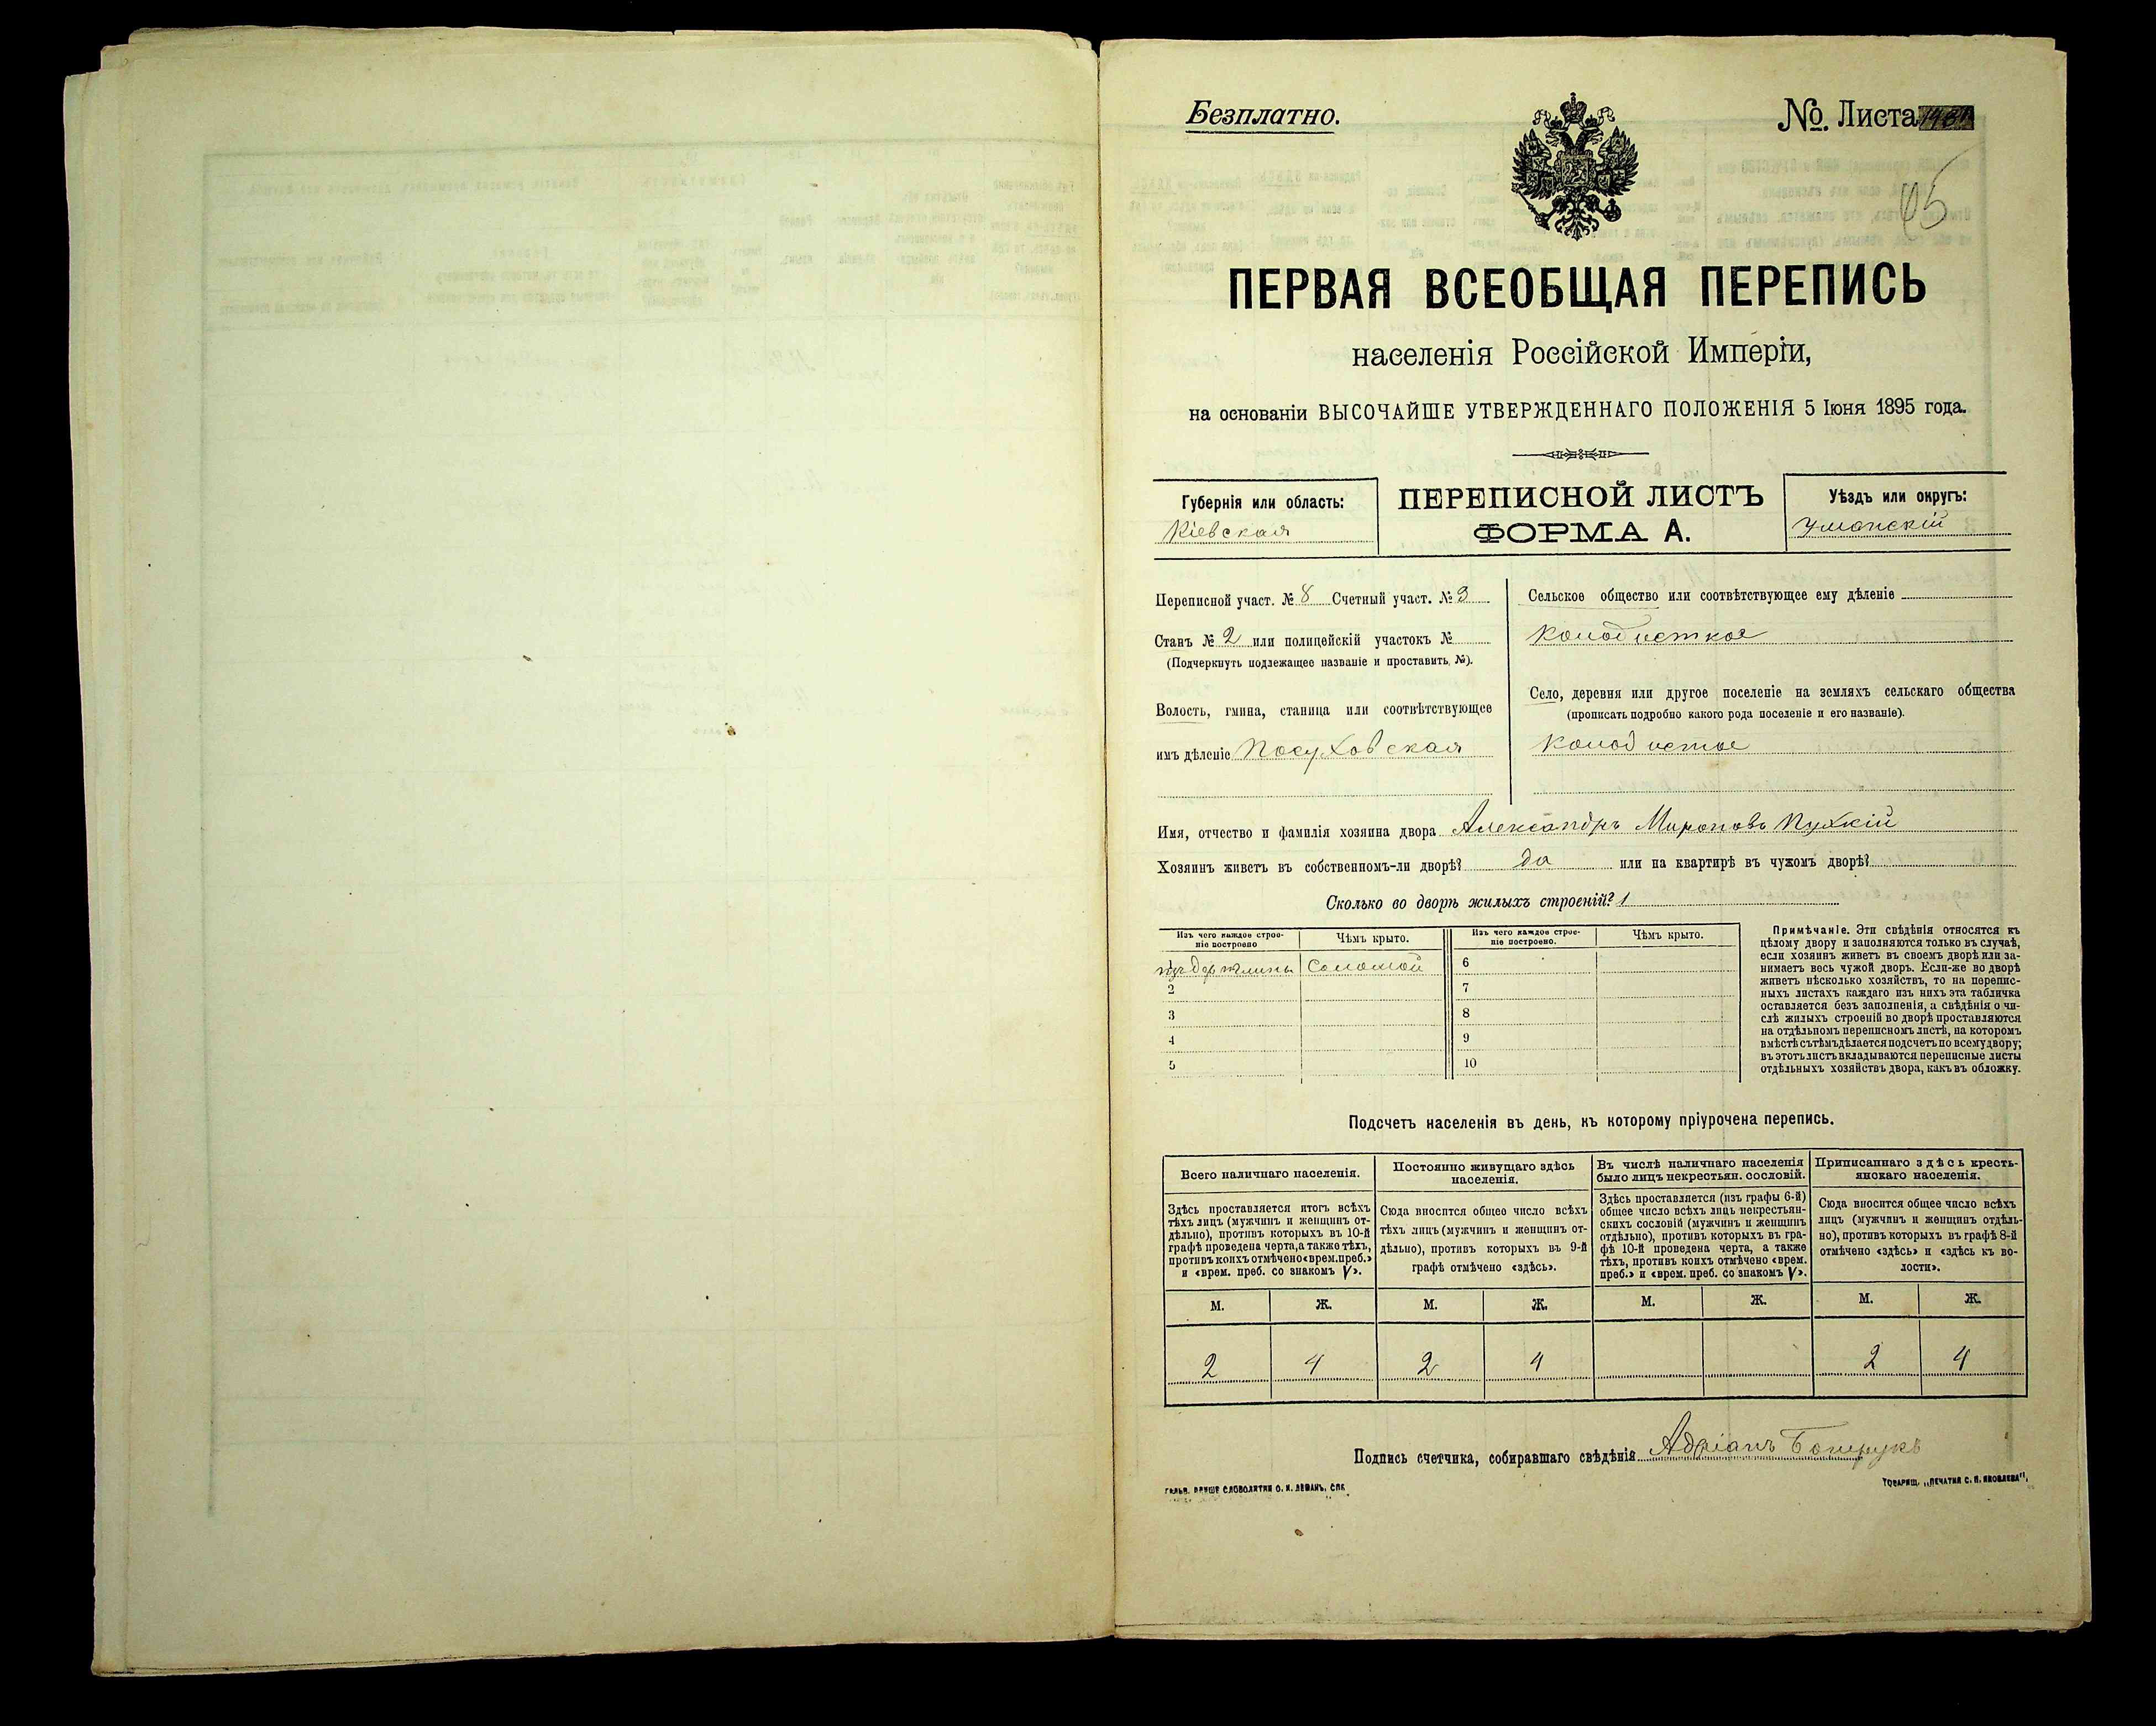 Безплатно.
№. Листа
ПЕРВАЯ ВСЕОБЩАЯ ПЕРЕПИСЬ
населенія Россійской Имперіи,
на основаніи ВЫСОЧАЙШЕ УТВЕРЖДЕННАГО ПОЛОЖЕНІЯ 5 Іюня 1895 года.
Губернія или область:
Кіевская
ПЕРЕПИСНОЙ ЛИСТЪ
ФОРМА А.
Уѣздъ или округъ:
Уманскій
Переписной участ. № 8 Счетный участ. № 3
Станъ № 2 или полицейскій участокъ №
(Подчеркнуть подлежащее названіе и проставить №).
Волость, гмина, станица или соотвѣтствующее
имъ дѣленіе Посуховская
Сельское общество или соотвѣтствующее ему дѣленіе
Колодистое
Село, деревня или другое поселеніе на земляхъ сельскаго общества
(прописать подробно какого рода поселеніе и его названіе).
Колодистое
Имя, отчество и фамилія хозяина двора Александръ Мироновъ Пухкій
Хозяинъ живетъ въ собственномъ-ли дворѣ? да или на квартирѣ въ чужомъ дворѣ?
Сколько во дворѣ жилыхъ строеній? 1
Изъ чего каждое строе-
ніе построено
Чѣмъ крыто.
Изъ чего каждое строе-
ніе построено.
Чѣмъ крыто.
Соломой
6
2
7
3
8
4
9
5
10
Примѣчаніе. Эти свѣдѣнія относятся къ
цѣлому двору и заполняются только въ случаѣ,
если хозяинъ живетъ въ своемъ дворѣ или за-
нимаетъ весь чужой дворъ. Если-же во дворѣ
живетъ нѣсколько хозяйствъ, то на перепис-
ныхъ листахъ каждаго изъ нихъ эта табличка
оставляется безъ заполненія, а свѣдѣнія о чи-
слѣ жилыхъ строеній во дворѣ проставляются
на отдѣльномъ переписномъ листѣ, на которомъ
вмѣстѣ съ тѣмъ дѣлается подсчетъ по всему двору;
въ этотъ листъ вкладываются переписные листы
отдѣльныхъ хозяйствъ двора, какъ въ обложку.
Подсчетъ населенія въ день, къ которому пріурочена перепись.
Всего наличнаго населенія.
Здѣсь проставляется итогъ всѣхъ
тѣхъ лицъ (мужчинъ и женщинъ от-
дѣльно), противъ которыхъ въ 10-й
графѣ проведена черта, а также тѣхъ,
противъ коихъ отмѣчено «врем. преб.»
и «врем. преб. со знакомъ V».
Постоянно живущаго здѣсь
населенія.
Сюда вносится общее число всѣхъ
тѣхъ лицъ (мужчинъ и женщинъ от-
дѣльно), противъ которыхъ въ 9-й
графѣ отмѣчено «здѣсь».
Въ числѣ наличнаго населенія
было лицъ некрестьян. сословій.
Здѣсь проставляется (изъ графы 6-й)
общее число всѣхъ лицъ некрестьян-
скихъ сословій (мужчинъ и женщинъ
отдѣльно), противъ которыхъ въ гра-
фѣ 10-й проведена черта, а также
тѣхъ, противъ коихъ отмѣчено «врем.
преб.» и «врем. преб. со знакомъ V».
Приписаннаго здѣсь кресть-
янскаго населенія.
Сюда вносится общее число всѣхъ
лицъ (мужчинъ и женщинъ отдѣль-
но), противъ которыхъ въ графѣ 8-й
отмѣчено «здѣсь» и «здѣсь къ во-
лости».
М. Ж. М. Ж. М. Ж. М. Ж.
2 4 2 4 2 4
Подпись счетчика, собиравшаго свѣдѣнія Адріанъ
ТОВАРИЩ. „ПЕЧАТНЯ С. П. ЯКОВЛЕВА“,